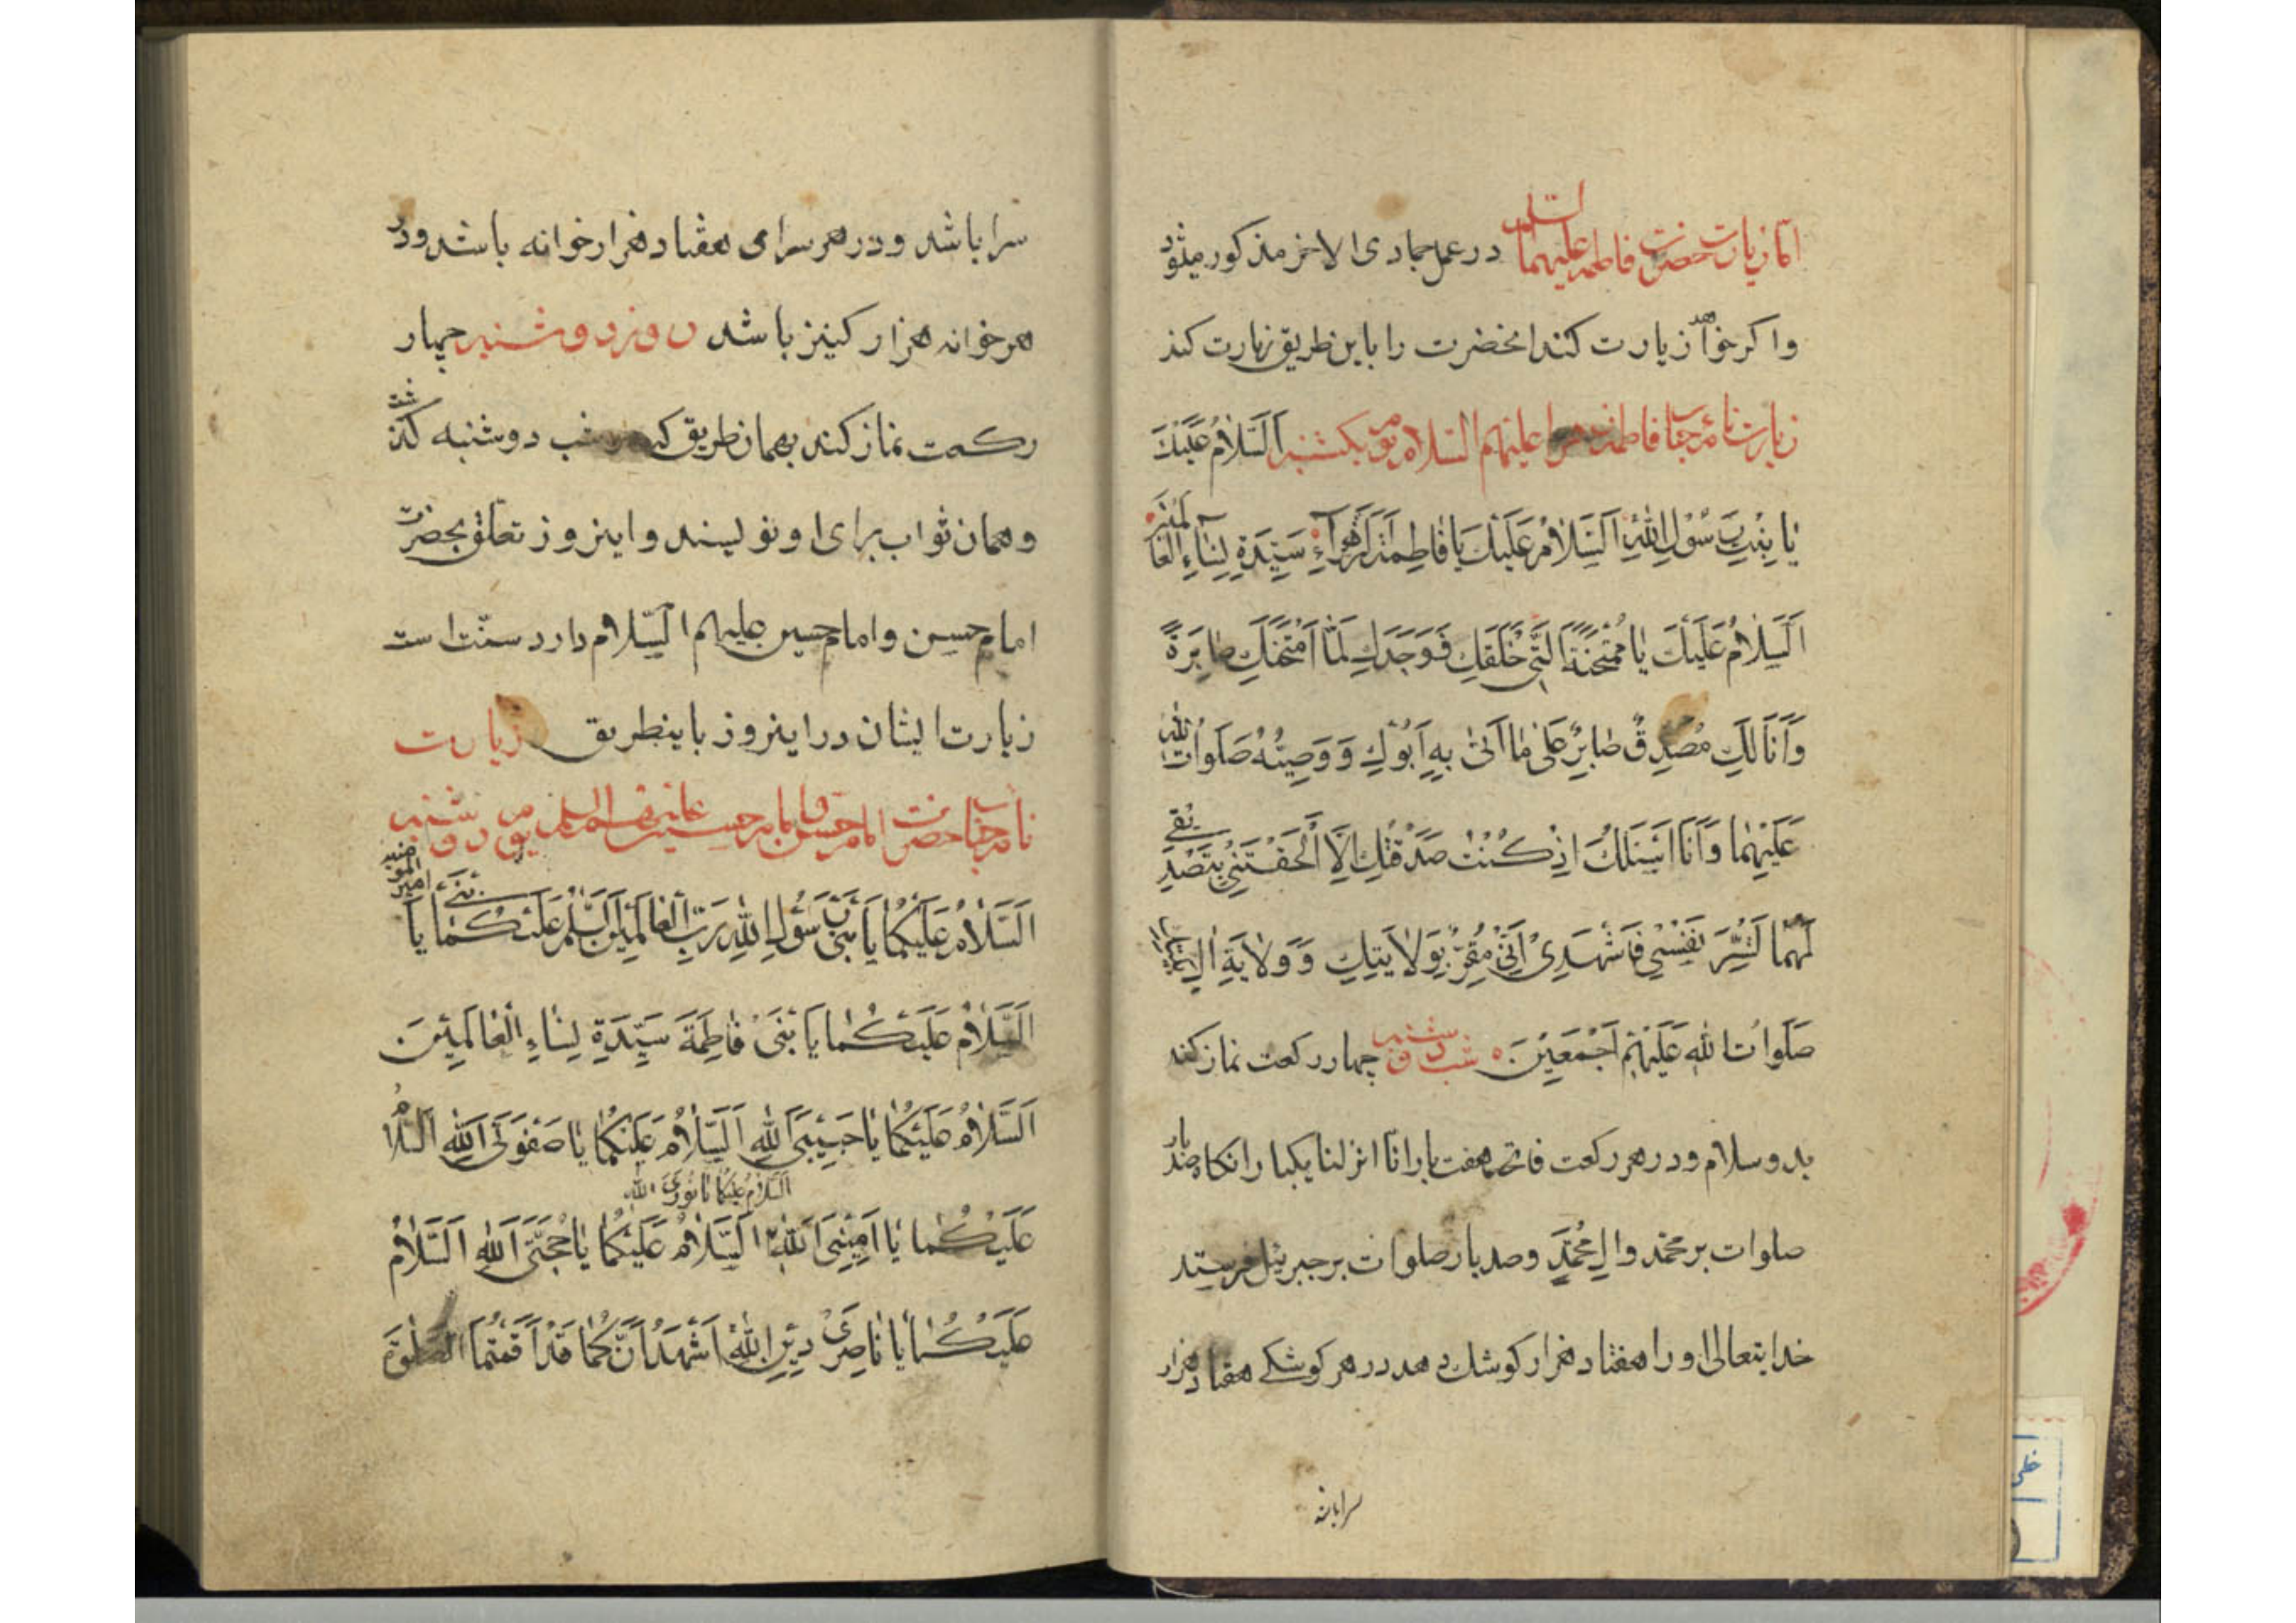 امّا زیارت حضرت فاطمه علیهما السلم در عمل جمادی الاخر مذکور میشود
و اکر خواهد زیارت کند انحضرت را باین طریق زیارت کند
زیارت نامه جناب فاطمه زهرا علیهم السّلام یوم یکشنبه اَلسَّلامُ عَلَیْكَ
یا بِنْتِ رَسُوْلِ اللهِ اَلسَّلامُ عَلَیْكَ یَا فاطِمَةَ الزَّهْراءِ سَیِّدَةِ نِساءِ الْعالَمیْنَ
اَلسَّلامُ عَلَیْكَ یا مُمْتَحَنَةً الَّتِی خَلَقَكِ فَوَجَدَكِ لَمَّا امْتَحَنَكِ صابِرَةً
وَ اَنَا لَكِ مُصَدِّقٌ صابِرٌ عَلی ما اَتیٰ بِهِ اَبُوْكِ وَ وَصِیُّهُ صَلَواتُ اللهِ
عَلَیْهِما وَ اَنَا اَسْئَلُكَ اِذْ کُنْتُ صَدَّقْتُكِ اِلّا اَلْحَقْتِنیْ بِتَصْدیْقی
لَهُما لَتُسِّرَ نَفْسْی فَاشْهَدِیْ اَنّیْ مُقِرٌّ بِوَلایَتِكِ وَ وَلایَةِ الِ
صَلَواتُ اللهِ عَلَیْهِمْ اَجْمَعیْنَ ٥ شب دوشنبه چهار رکعت نماز کند
بدو سلام و در هر رکعت فاتحه هفت بار انّا انزلنا یکبار انکاه صد بار
صلوات بر محمّد و الِ مُحَمَّدٍ و صد بار صلوات بر جبرئیل فرستد
خدایتعالی او را هفتاد هزار کوشك دهد در هر کوشکے هفتاد هزار
سرا باشد
سرا باشد و در هر سرای هفتاد هزار خوانه باشد و در
هر خوانه هزار کنیز باشد روز دوشنبه چهار
رکعت نماز کند بهمان طریق که در شب دوشنبه کذشت
و همان ثواب برای او نویسند و اینروز تعلق بحضرت
امام حسن و امام حسین علیهم السّلام دارد سنّت است
زیارت ایشان در اینروز باینطریق زیارت
نامه جناب حضرت امام حسن و امام حسین علیهم السلم یوم دوشنبه
اَلسَّلامُ عَلَیْکُما یَا بَنی رَسُوْلِ اللهِ رَبِّ الْعالَمِیْنَ اَلسَّلمُ عَلَیْکُما یَا بَنَیْ امیر المؤمنین
اَلسَّلامُ عَلَیْکُما یَا بَنَیْ فاطِمَةَ سَیِّدَةِ نِساءِ الْعالَمیْنَ
اَلسَّلامُ عَلَیْکُما یا حَبیْبَیَ اللهِ اَلسَّلامُ عَلَیْکُما یا صَفْوَتَیَ اللهِ اَلسَّلامُ
السَّلامُ عَلَیْکُما یَا نُورَیَ اللهِ
عَلَیْکُما یَا اَمیْنَیَ اللهِ اَلسَّلامُ عَلَیْکُما یا حُجَّتَیَ اللهِ اَلسَّلامُ
عَلَیْکُما یَا ناصِرَیْ دیْنِ اللهِ اَشْهَدُ اَنَّکُما قَدْ اَقَمْتُمَا الصَّلوٰةَ